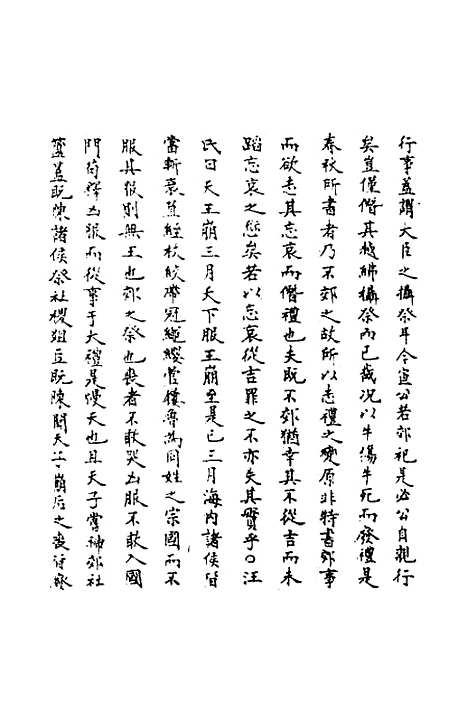 行事蓋謂大臣之攝祭耳今宣公若郊祀是必公自親行
矣豈僅僭其越紼攝祭而已哉况以牛傷牛死而發禮是
春秋所書者乃不郊之故所以志禮之變原非特書郊事
而欲志其忘哀而僭禮也夫既不郊猶幸其不從吉而未
蹈忘哀之愆矣若以忘哀從吉罪之不亦失其實乎○汪
氏曰天王崩三月天下服王崩至是已三月海內諸侯皆
當斬衰苴絰杖絞帶冠繩纓菅屨魯為同姓之宗國而不
服其服則無王也郊之祭也喪者不敢哭凶服不敢入國
門苟釋凶服而從事于大禮是慢天也且天子嘗禘郊社
簠簋既陳諸侯祭社稷俎豆既陳聞天子崩后之喪皆廢